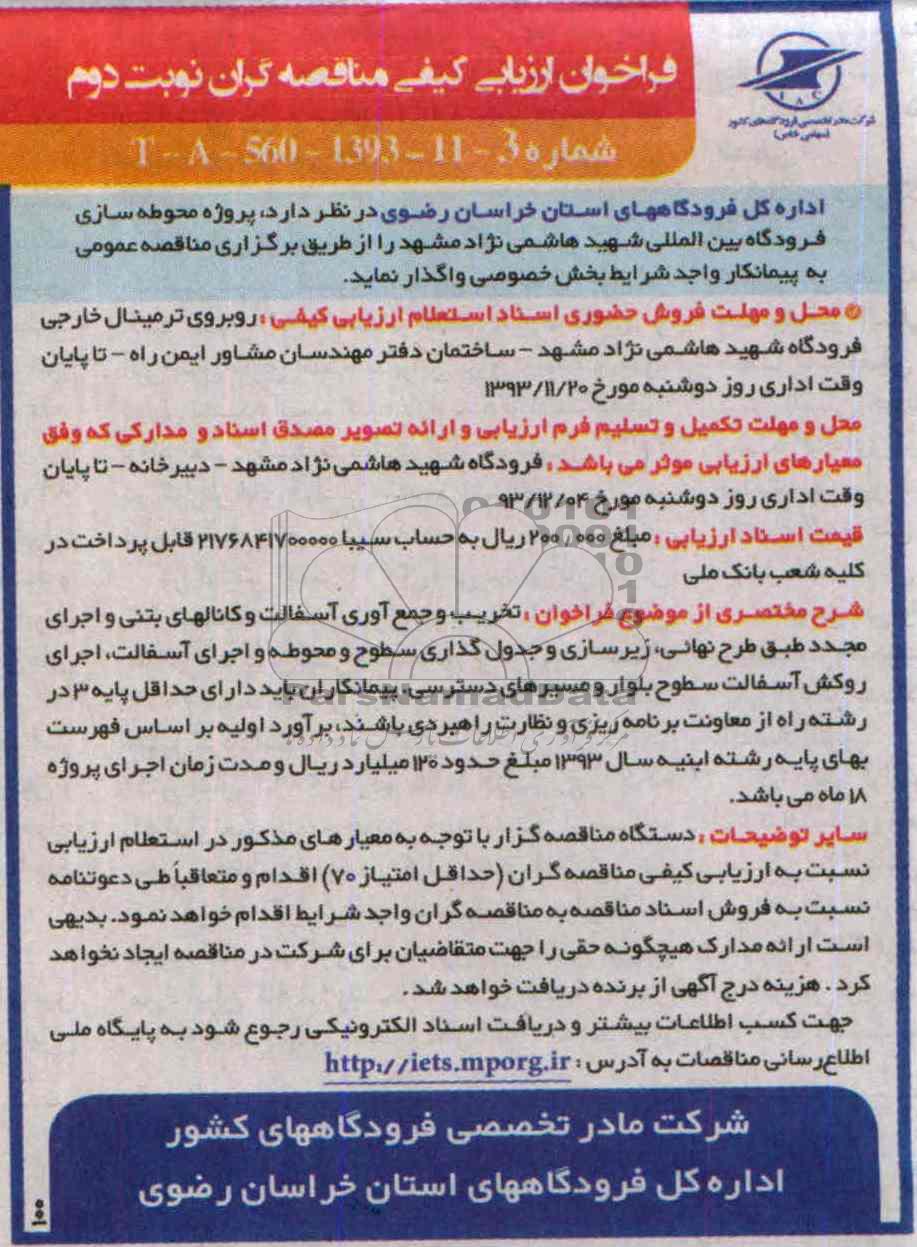 فراخوان ارزیابی کیفی مناقصه گران نوبت دوم
شماره 3 - 11 - 1393 - 560 - T - A
IAC
شرکت مادر تخصصی فرودگاههای کشور
(سهامی خاص)
اداره کل فرودگاههای استان خراسان رضوی در نظر دارد، پروژه محوطه سازی
فرودگاه بین المللی شهید هاشمی نژاد مشهد را از طریق برگزاری مناقصه عمومی
به پیمانکار واجد شرایط بخش خصوصی واگذار نماید.
محل و مهلت فروش حضوری اسناد استعلام ارزیابی کیفی : روبروی ترمینال خارجی
فرودگاه شهید هاشمی نژاد مشهد – ساختمان دفتر مهندسان مشاور ایمن راه – تا پایان
وقت اداری روز دوشنبه مورخ ۱۳۹۳/۱۱/۲۰
محل و مهلت تکمیل و تسلیم فرم ارزیابی و ارائه تصویر مصدق اسناد و مدارکی که وفق
معیارهای ارزیابی موثر می باشد : فرودگاه شهید هاشمی نژاد مشهد – دبیرخانه – تا پایان
وقت اداری روز دوشنبه مورخ ۹۳/۱۲/۰۴
قیمت اسناد ارزیابی : مبلغ ۲۰۰/۰۰۰ ریال به حساب سیبا ۲۱۷۶۸۴۱۷۰۰۰۰۰ قابل پرداخت در
کلیه شعب بانک ملی
شرح مختصری از موضوع فراخوان : تخریب و جمع آوری آسفالت و کانالهای بتنی و اجرای
مجدد طبق طرح نهائی، زیرسازی و جدول گذاری سطوح و محوطه و اجرای آسفالت، اجرای
روکش آسفالت سطوح بلوار و مسیرهای دسترسی. پیمانکاران باید دارای حداقل پایه ۳ در
رشته راه از معاونت برنامه ریزی و نظارت راهبردی باشند، برآورد اولیه بر اساس فهرست
بهای پایه رشته ابنیه سال ۱۳۹۳ مبلغ حدود ۱۲۵ میلیارد ریال و مدت زمان اجرای پروژه
۱۸ ماه می باشد.
سایر توضیحات : دستگاه مناقصه گزار با توجه به معیارهای مذکور در استعلام ارزیابی
نسبت به ارزیابی کیفی مناقصه گران (حداقل امتیاز ۷۰) اقدام و متعاقباً طی دعوتنامه
نسبت به فروش اسناد مناقصه به مناقصه گران واجد شرایط اقدام خواهد نمود. بدیهی
است ارائه مدارک هیچگونه حقی را جهت متقاضیان برای شرکت در مناقصه ایجاد نخواهد
کرد . هزینه درج آگهی از برنده دریافت خواهد شد .
جهت کسب اطلاعات بیشتر و دریافت اسناد الکترونیکی رجوع شود به پایگاه ملی
اطلاع رسانی مناقصات به آدرس : http://iets.mporg.ir
ParsNamadData
شرکت مادر تخصصی فرودگاههای کشور
اداره کل فرودگاههای استان خراسان رضوی
۱۰۰